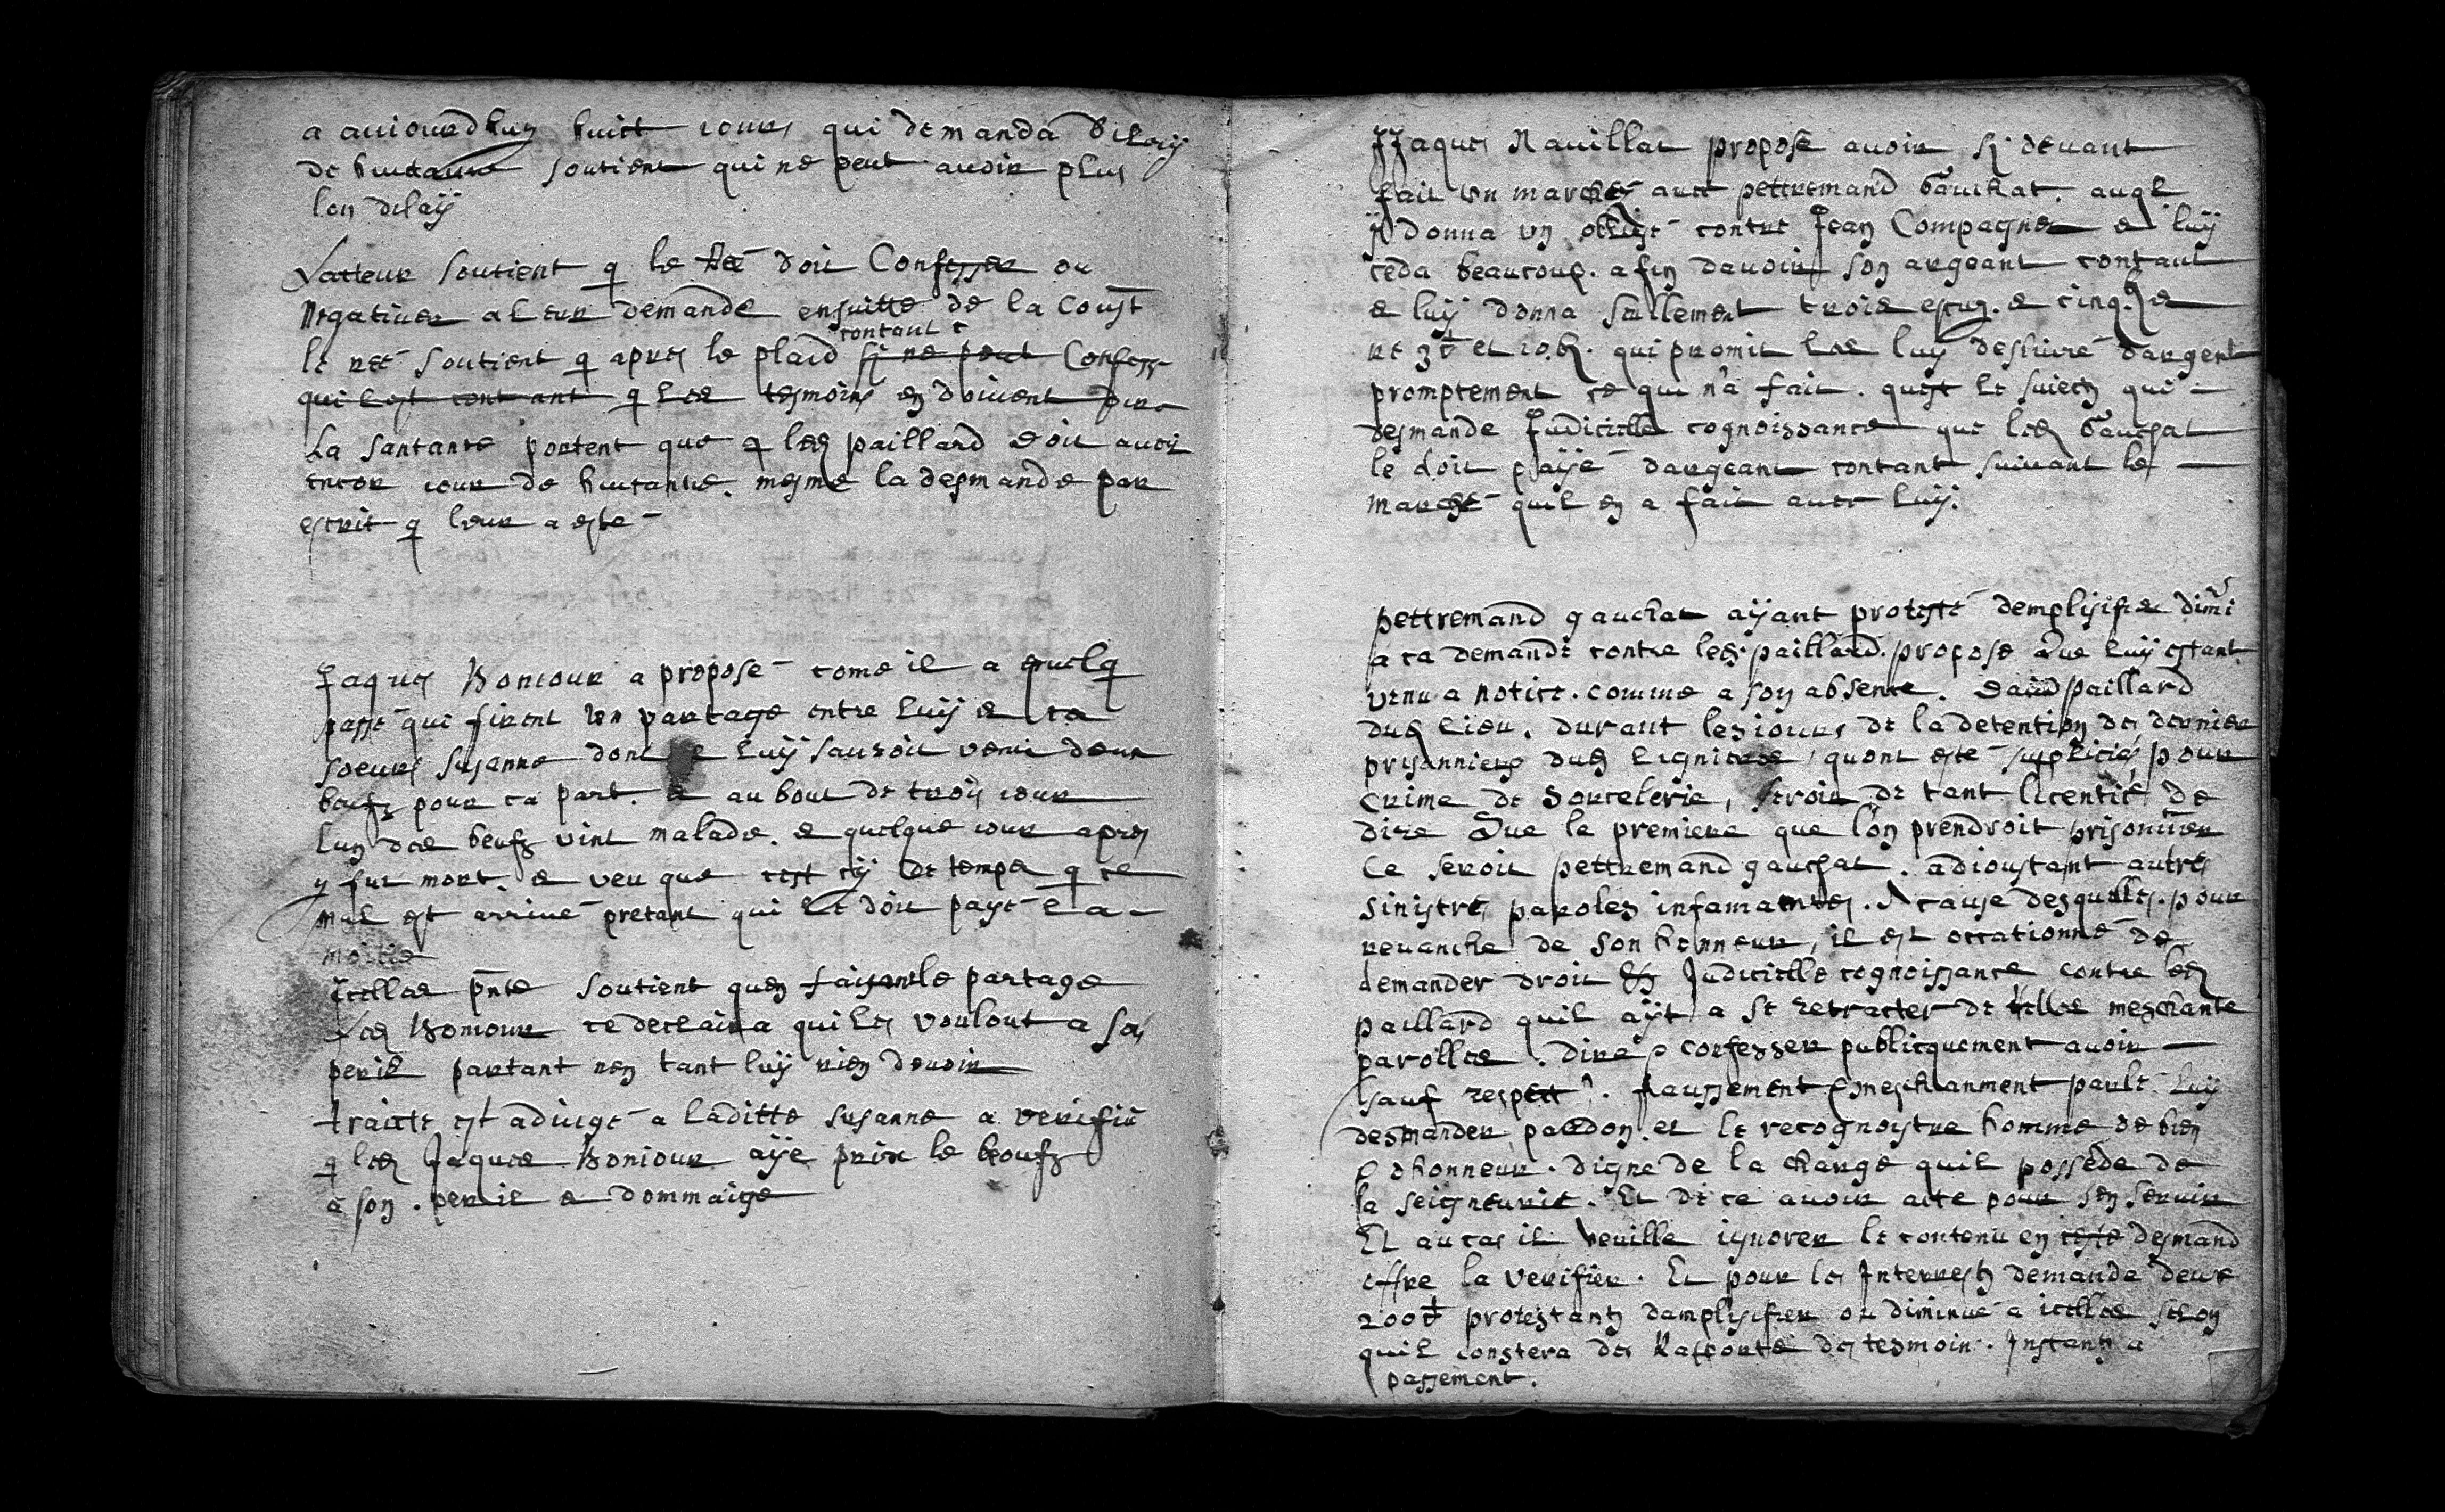 a auiourdhuy huict iours qui demanda dilaÿ
de huictaine soutient qui ne peut auoir plus
lon dilaÿ
Latteur soutient q le Reé doit Confesser ou
Negatiuer a leur demande ensuitte de la Coust
contant
le reé soutient q apres le plaid sy ne peut Confess
quil est contant q les tesmoins en doiuent dire
La santance portent que q led paillard doit auoir
encor iour de huictaine. mesme la desmande par
escrit q leur a esté
Jaques Boniour a proposé come il a quelq
passé qui firent un partage entre luÿ e ca
soeurs Susanne dont luÿ sauroit veni deux
beufz pour ca part. e au bout de trois iour
lun des beufz vint malade. e quelque iour apres
y fut mort. e veu que cest sÿ de temps q ce
mal est arriué pretant qui le doit payé la
moitie
Icelles pnte soutient quen faisant le partage
Led Boniour ce declaira qui les voulout a son
peril partant nen tant luÿ rien deuoir
traicte est adiugé a laditte Susanne a verifié
q led Jaques Boniour aÿe prix le beoufz
a son. peril e dommaige
JJaques Nauillat propose auoir sÿ deuant
fait un marché auec pettremand Gauchat. auql
ÿl donna un obligé contre Jean Compagnes e luÿ
ceda beaucoup. afin dauoir son argeant contant
e luÿ donna sullement trois escuz. e cinq
qui promit les luÿ desliuré dargent
promptement ce qui n'a fait. quest le suiect qui
desmande Judicielle cognoissance que led Gauchat
le doit païje dargeant contant suiuant le
marché quil en a fait auec luÿ.
pettremand gauchat aÿant protesté demplifier dimi
a ca demande contre led. paillard. propose Que luÿ estant
venu a notice. comme a son absence. Dauid paillard
dud lieu. durant les iours de la detention des dernier
prisonniers dud Lignieres quont esté suplicié pour
crime de Sorcelerie, seroit de tant licentié de
dire Que le premiere que lon prendroit prisonnier
Ce seroit pettremand gauchat. adioustant autres
sinistres paroles infamantes. A cause desquelles. pour
reuanche de son honneur, il est occationné de
demander droit & Judicielle cognoissance contre led
paillard quil aÿt a se retracter de telles meschante
parolles. dire e confesser publicquement auoir
sauf respect. faussement e meschanment parlé Luÿ
desmander pardon. et le recognoistre homme de bien
e dhonneur. digne de la charge quil possede de
la seigneurie. Et de ce auoir acte pour sen seruir
Et au cas il veuille ignorer le contenu en ceste desmand
offre la verifier. Et pour les Interrests demande deux
200 protestants damplifier ou diminué a icelles selon
quil constera des Raptorte des tesmoins. Instant a
passement.